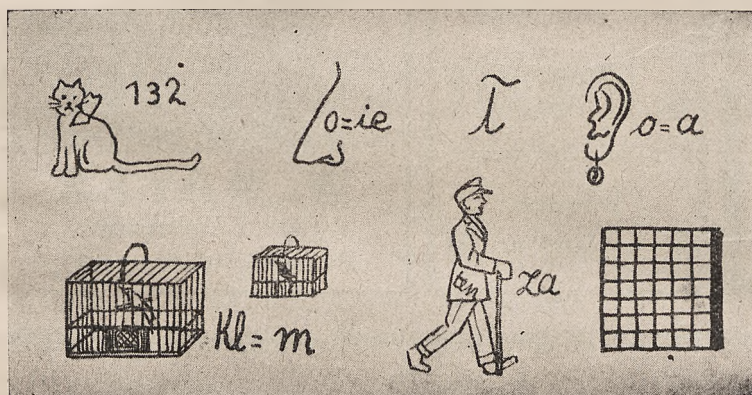 132
o=ie
t
o=a
Kl=m
za